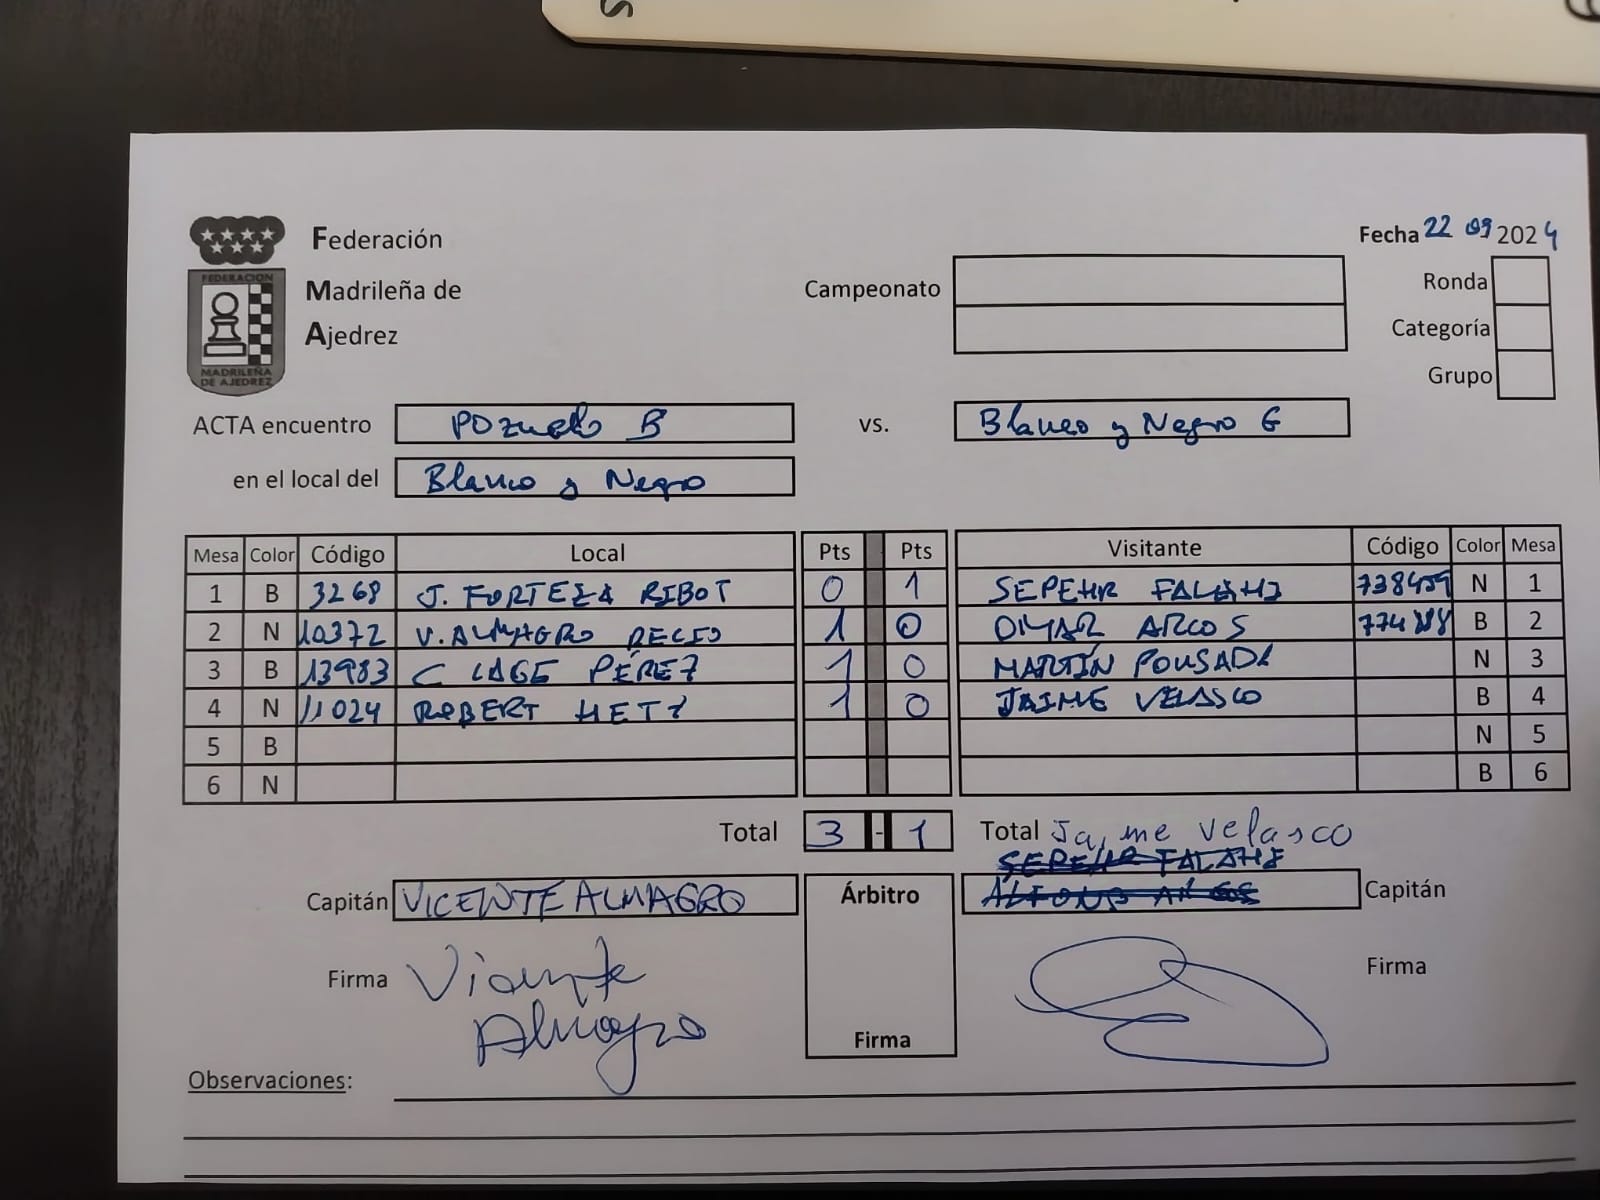 Federación
Madrileña de
Ajedrez
FEDERACION
MADRILEÑA
DE AJEDREZ
Fecha 22 09 2024
Campeonato
Ronda
Categoría
Grupo
ACTA encuentro Pozuelo B vs. Blanco y Negro G
en el local del Blanco y Negro
Mesa Color Código Local Pts Pts Visitante Código Color Mesa
1 B 3268 J. FORTEZA RIBOT 0 1 SEPEHR FALAHI 738459 N 1
2 N 10372 V. ALMAGRO RECIO 1 0 OMAR ARCOS B 2
3 B 13983 C LAGE PÉREZ 1 0 MARTÍN POUSADA N 3
4 N 11024 ROBERT HETZ 1 0 JAIME VELASCO B 4
5 B N 5
6 N B 6
Total 3 - 1 Total Jaime Velasco
SEPEHR FALAHI
Capitán VICENTE ALMAGRO Árbitro Capitán
Firma Vicente Almagro Firma
Firma
Observaciones: